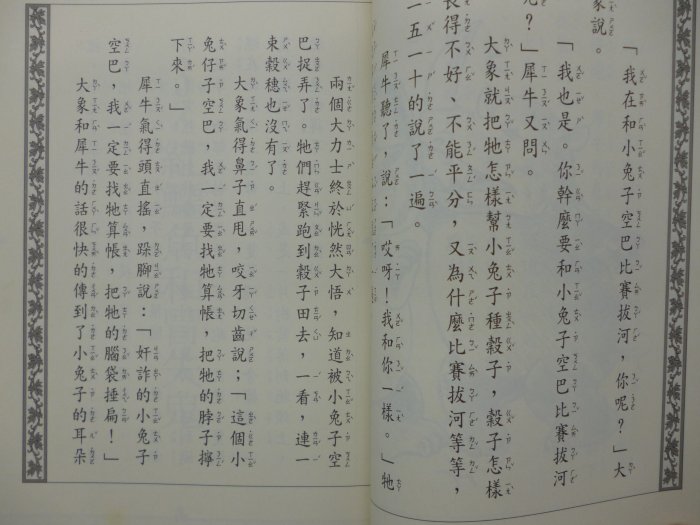 「我在和小兔子空巴比賽拔河，你呢？」大
象說。
「我也是。你幹麼要和小兔子空巴比賽拔河
呢？」犀牛又問。
大象就把牠怎樣幫小兔子種穀子，穀子怎樣
長得不好、不能平分，又為什麼比賽拔河等等，
一五一十的說了一遍。
犀牛聽了，說：「哎呀！我和你一樣。」牠
兩個大力士終於恍然大悟，知道被小兔子空
巴捉弄了。牠們趕緊跑到穀子田去，一看，連一
束穀穗也沒有了。
大象氣得鼻子直甩，咬牙切齒說；「這個小
兔仔子空巴，我一定要找牠算帳，把牠的脖子擰
下來。」
犀牛氣得頭直搖，跺腳說：「奸詐的小兔子
空巴，我一定要找牠算帳，把牠的腦袋捶扁！」
大象和犀牛的話很快的傳到了小兔子的耳朵